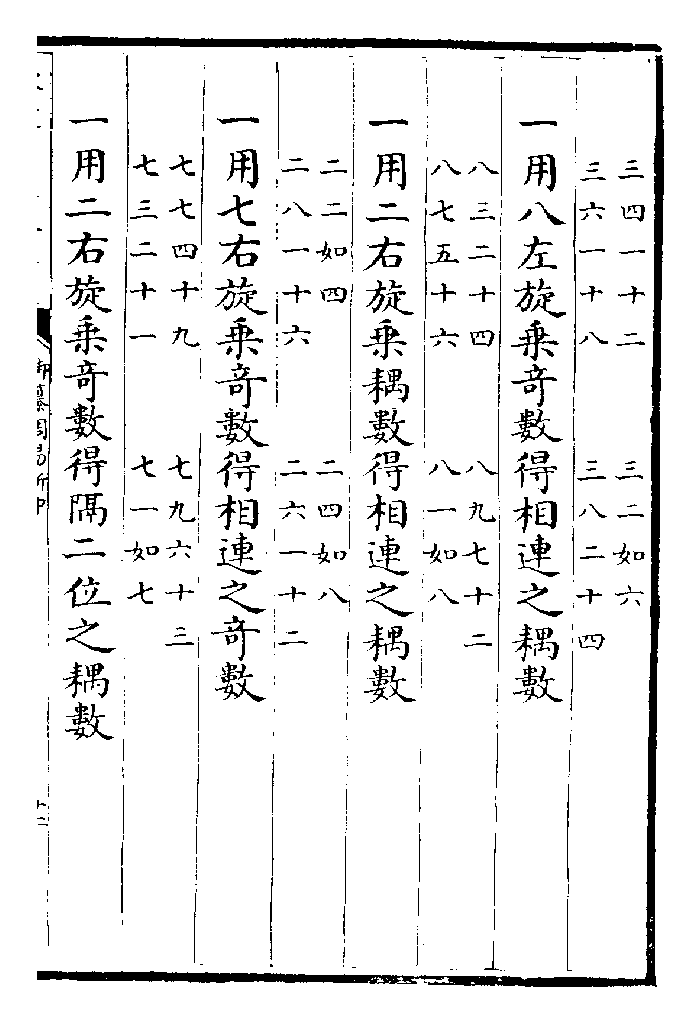 三四一十二　三二如六
三六一十八　三八二十四
一用八左旋乗奇數得相連之耦數
八三二十四　八九七十二
八七五十六　八一如八
一用二右旋乗耦數得相連之耦數
二二如四　二四如八
二八一十六　二六一十二
一用七右旋乗奇數得相連之奇數
七七四十九　七九六十三
七三二十一　七一如七
一用二右旋乗奇數得隔二位之耦數
御纂周易折中